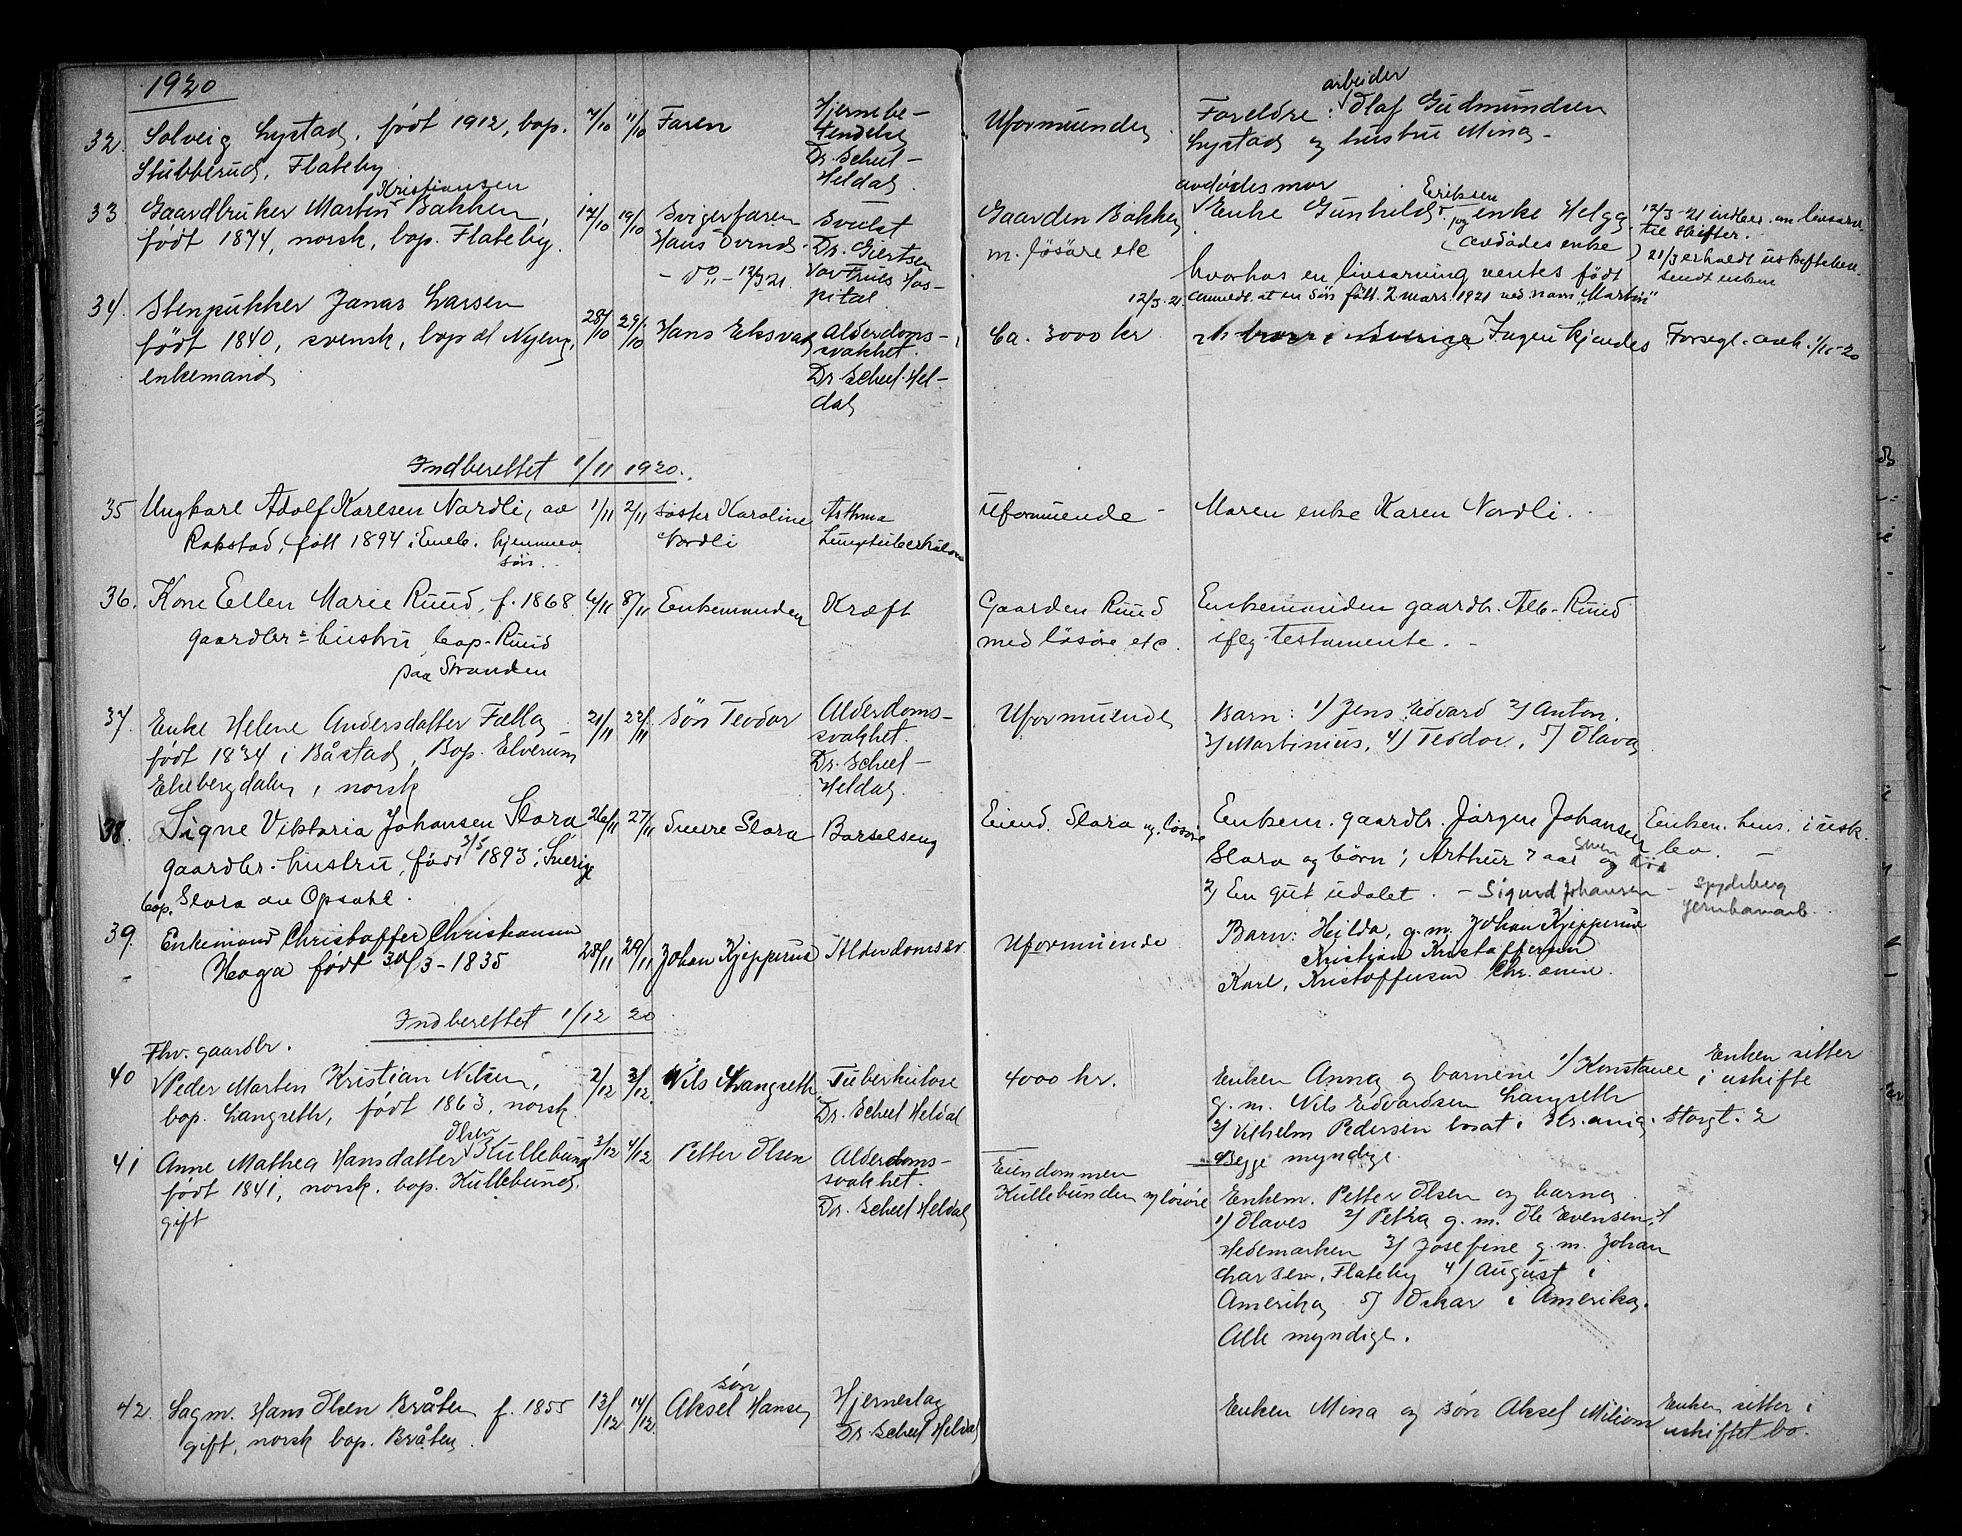 1920
32. Solveig Lystad, født 1912, bop. 7/10 11/10 Faren Hjernebe-
Stubberud, Flateby tendelse
Dr. Scheel-
Heldal.
Uformuende. Foreldre: arbeider Olaf Gudmundsen
Lystad og hustru Mina -
33 Gaardbruker Martin Kristiansen Bakken, 17/10 19/10 Svigerfaren Svulst
født 1874, norsk, bop. Flateby. Hans Dr. Giertsen
- do - 12/3 21. Vor Frues Hos-
pital.
Gaarden Bakken avdødes mor Enke Gunhild Eriksen og enke Helga
m. løsøre etc (avdødes enke)
hvorhos en livsarving ventes født
12/3-21 anmeldt at en søn født 2 mars 1921 ved navn "Martin"
12/3-21 indber. om livsarv.
til skifter.
21/3 erholdt uskiftebev.
sendt enken
34. Stenpukker Janas Larsen 28/10 29/10 Hans Eksvad Alderdoms-
født 1840, svensk, bop. Nyeng, svakhet.
enkemand Dr. Scheel-Hel-
dal
Ca. 3000 kr Ingen kjendes Forsegl. anh. 1/11-20
Indberettet 1/11 1920.
35 Ungkarl Adolf Karlsen Nordli, av 1/11 2/11 søster Karoline Asthma
Rakstad, født 1894 i Eneb. hjemmev. Nordli Lungetuberkulose
søn.
uformuende - Moren enke Karen Nordli.
36. Kone Ellen Marie Ruud, f. 1868 6/11 8/11 Enkemanden Kræft
gaardbr.s hustru bop. Ruud
paa Stranden
Gaarden Ruud Enkemanden gaardbr. Alb. Ruud
med løsøre etc. ifølg. testamente. -
37. Enke Helene Andersdatter Fælla 21/11 22/11 søn Teodor Alderdoms-
født 1834 i Båstad, Bop. Elverum svakhet
Ekebergdalen, norsk Dr. Scheel-
Heldal.
Uformuende Barn: 1/ Jens Edvard 2/ Anton.
3/ Martinius, 4/ Teodor, 5/ Olava
38. Signe Viktoria Johansen Slora 26/11 27/11 Slora Barselseng
gaardbr. hustru, født 3/5 1893 i Sverige
bop. Slora av Opsahl.
Eiend. Slora og løsøre Enkem. gaardbr. Jørgen Johansen
Slora og børn: Arthur 7 aar og
2/ En gut udøbt. - Sigurd Johansen - Spydeberg
jernbanearb.
Enkem. hens. i usk.
bo. -
39. Enkemand Christoffer Christiansen 28/11 29/11 Johan Kjepperud Alderdomssv.
Haga født 30/3-1835
Uformuende Barn: Hilda, g.m. Johan Kjepperud
Kristian Kristoffersen
Karl, Kristoffersen Chr.ania.
Indberettet 1/12 20
Fhv. gaardbr.
40 Peder Morten Kristian Nilsen, 2/12 3/12. Nils Langseth Tuberkulose
bop. Langseth, født 1863, norsk. Dr. Scheel Heldal
4000 kr. Enken Anna og barnene 1/ Konstance
g.m. Nils Edvardsen Langseth
2/ Vilhelm Pedersen bosat i Kr.ania. Storgt. 2
Begge myndige.
Enken sitter
i uskifte
41 Anne Mathea Hansdatter Olsen Kullebund 3/12 4/12 Petter Olsen Alderdoms-
født 1841, norsk. bop. Kullebund, svakhet.
gift Dr. Scheel Heldal
Eiendommen
Kullebunden og løsøre Enkem. Petter Olsen og barna
1/ Olaves 2/ Petra g.m. Ole Evensen,
Hedemarken 3/ Josefine g.m. Johan
Larsen, Flateby 4/ August i
Amerika 5/ Oskar i Amerika.
Alle myndige.
42. Sagm. Hans Olsen Bråten f. 1855 13/12 14/12. søn Aksel Hansen Hjerneslag
gift, norsk bop. Bråten. Dr. Scheel Heldal
Enken Mina og søn Aksel Enken sitter i
uskiftet bo.